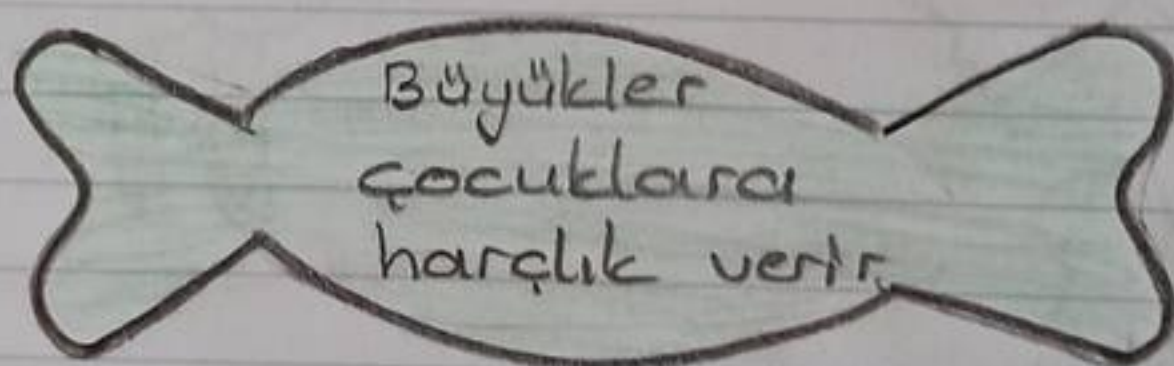 Büyükler
çocuklara
harçlık verir.